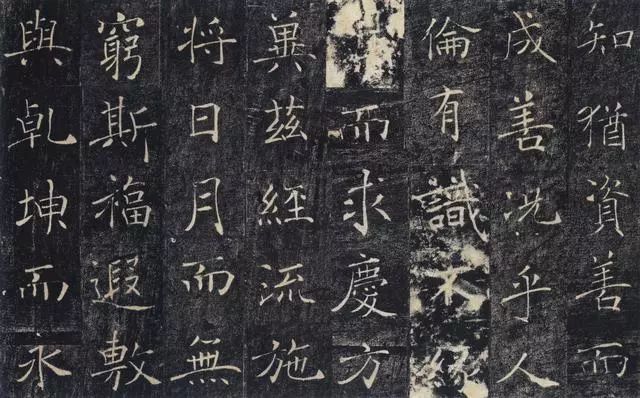 知猶資善而
成善况乎人
倫有識不緣
而求慶方
冀茲經流施
将日月而無
窮斯福遐敷
與乹坤而永